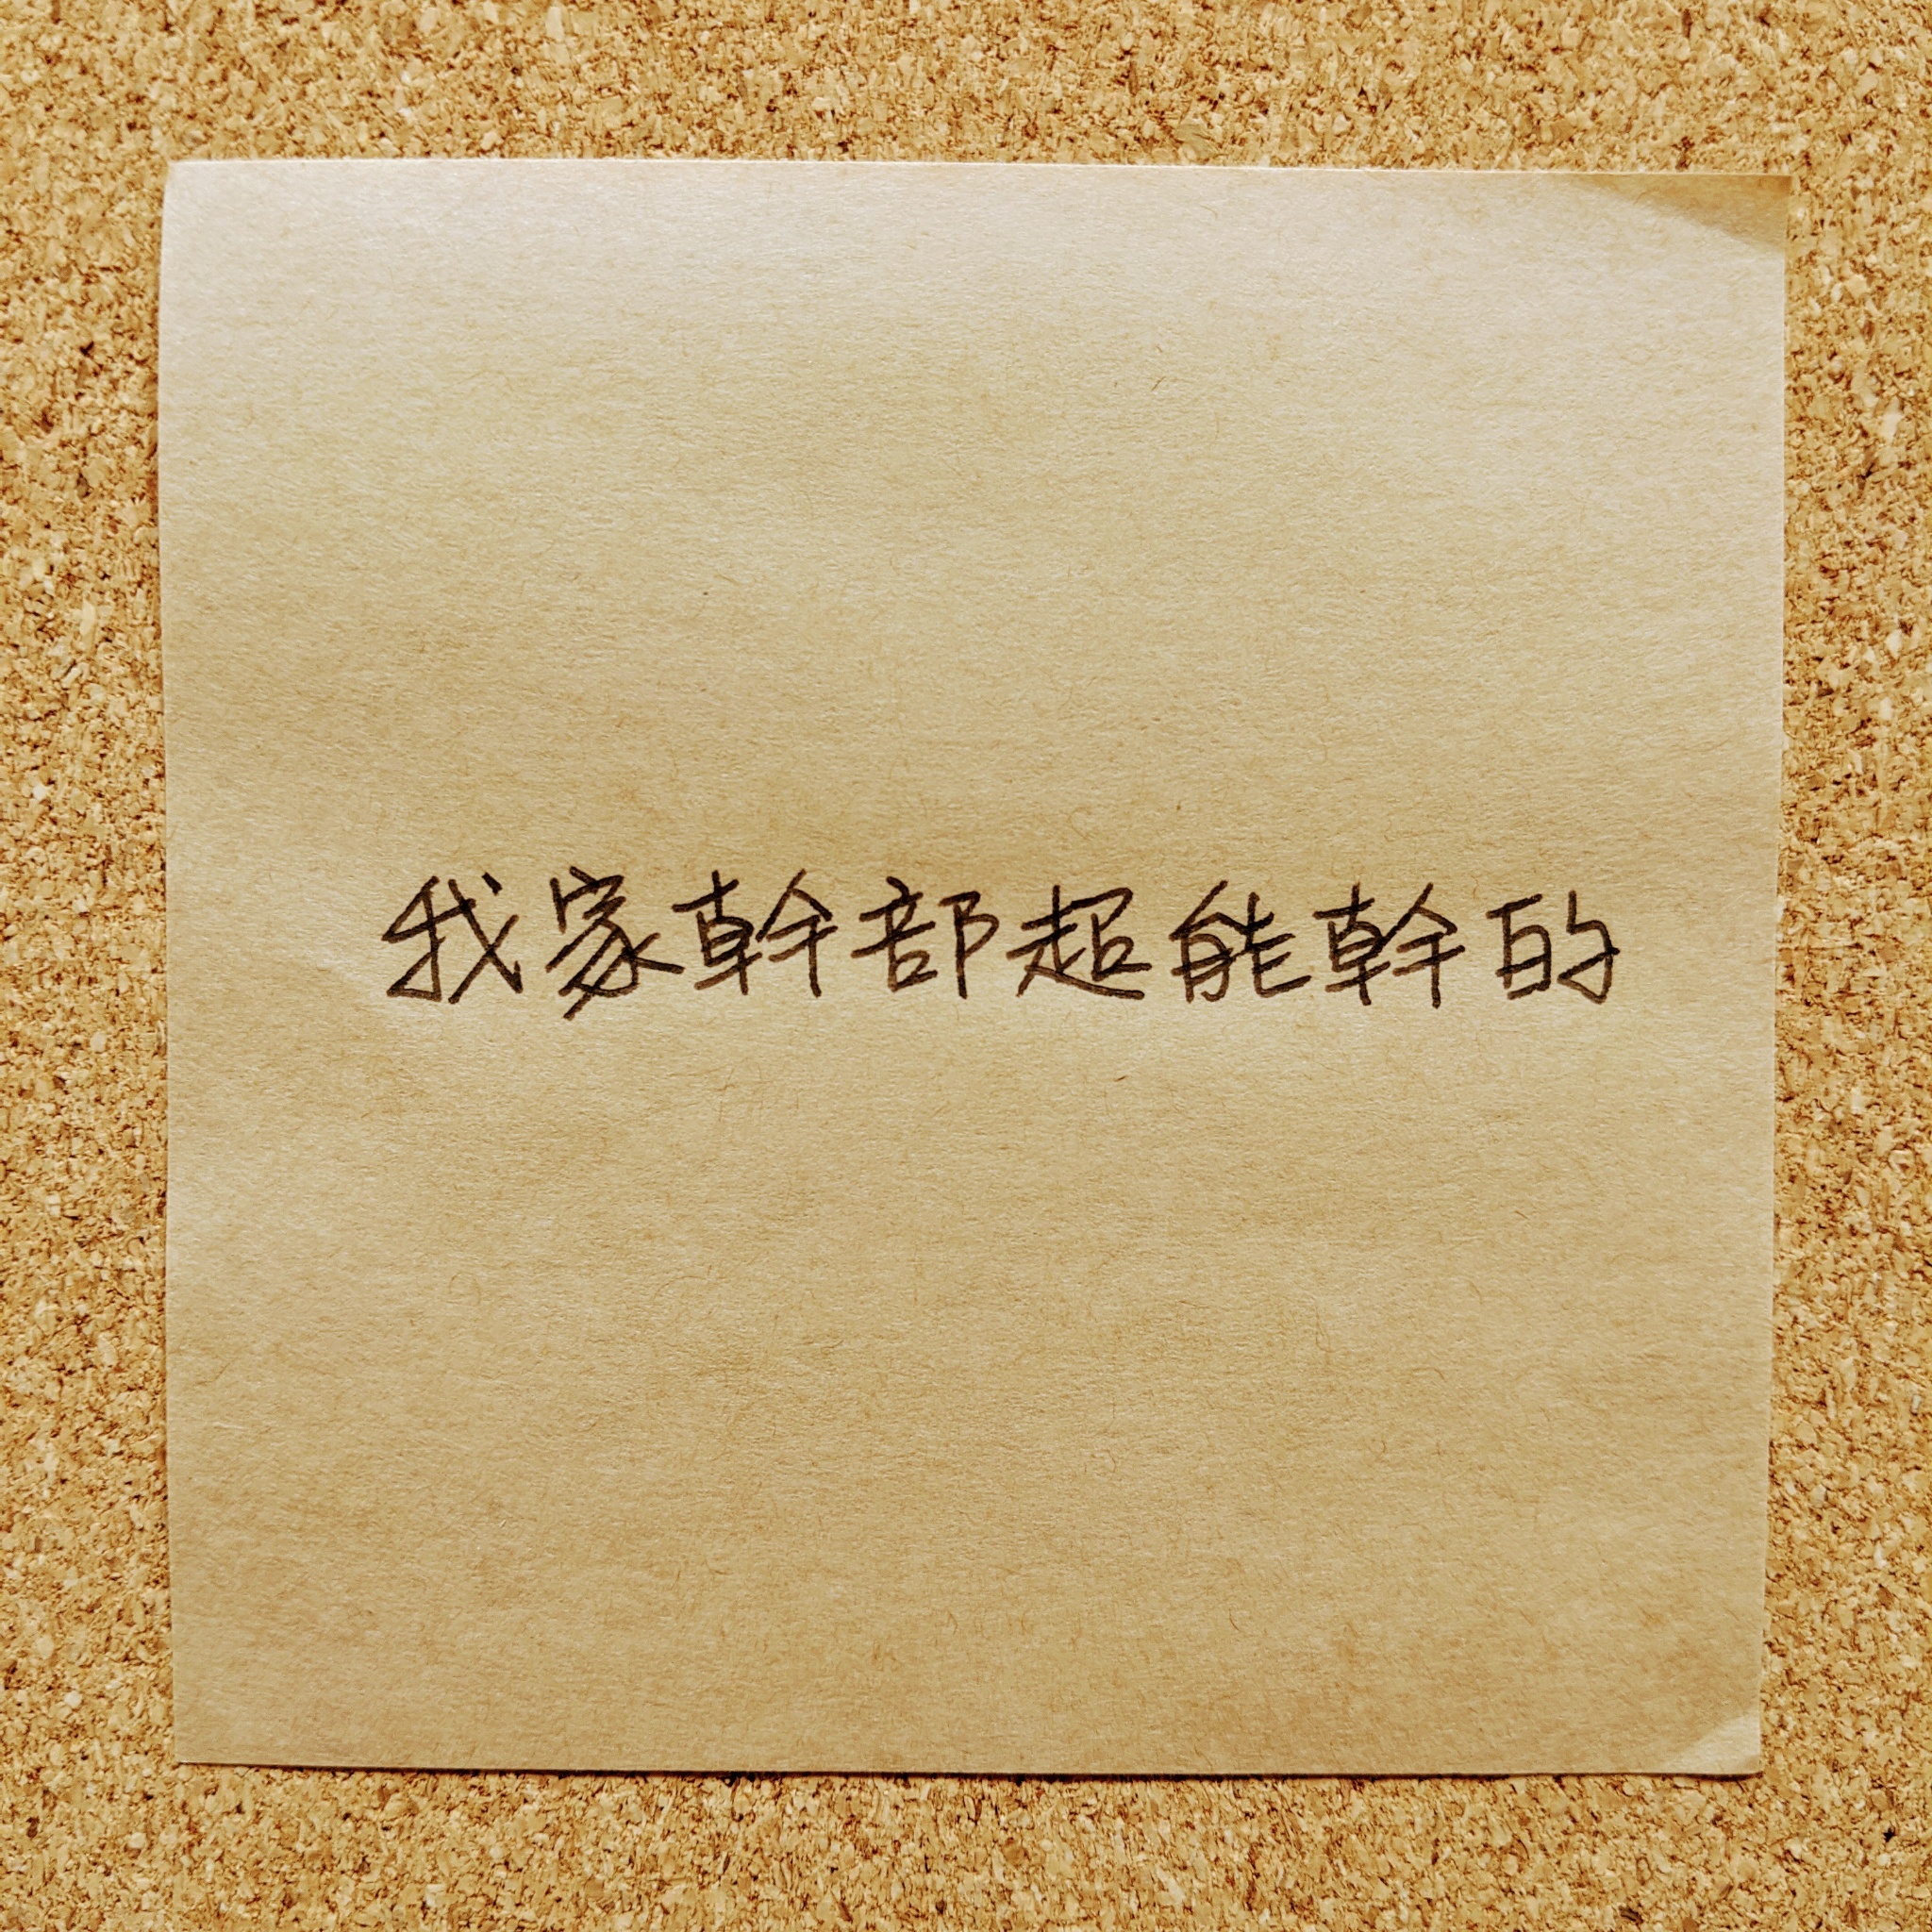 我家幹部超能幹的